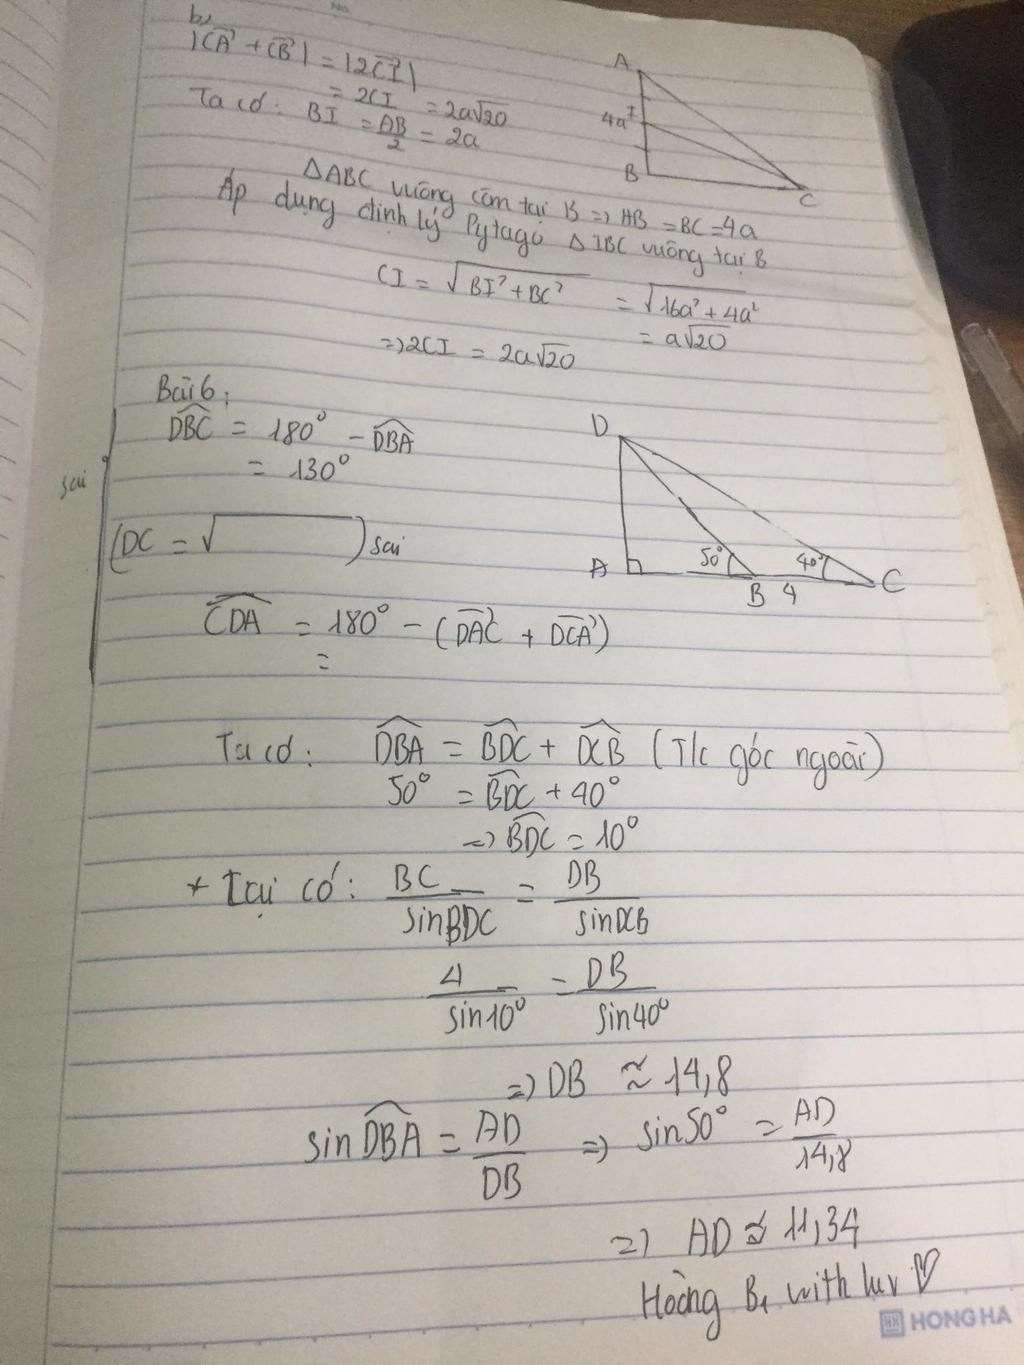 No.
b,
|CA + CB| = |2CI|
= 2CI = 2a√20
Ta có: BI = AB/2 = 2a
A
I
4a
B
C
ΔABC vuông cân tại B => AB = BC = 4a
Áp dụng định lý Pytago ΔIBC vuông tại B
CI = √BI² + BC² = √16a² + 4a²
= a√20
=> 2CI = 2a√20
Bài 6:
DBC = 180° - DBA
= 130°
sai
(DC = √ ) sai
D
A
50°
B
4
40°
C
CDA = 180° - (DAC + DCA)
=
Ta có: DBA = BDC + DCB (T/c góc ngoài)
50° = BDC + 40°
=> BDC = 10°
+ Lại có: BC/sinBDC = DB/sinDCB
4/sin10° = DB/sin40°
=> DB ≈ 14,8
sin DBA = AD/DB => sin50° = AD/14,8
=> AD ≈ 11,34
Hoàng B1 with luv ♡
HONG HA